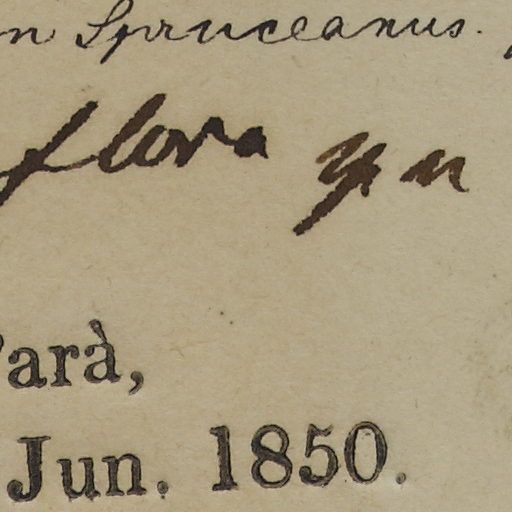 n Spruceanus.
flora
arà,
Jun. 1850.